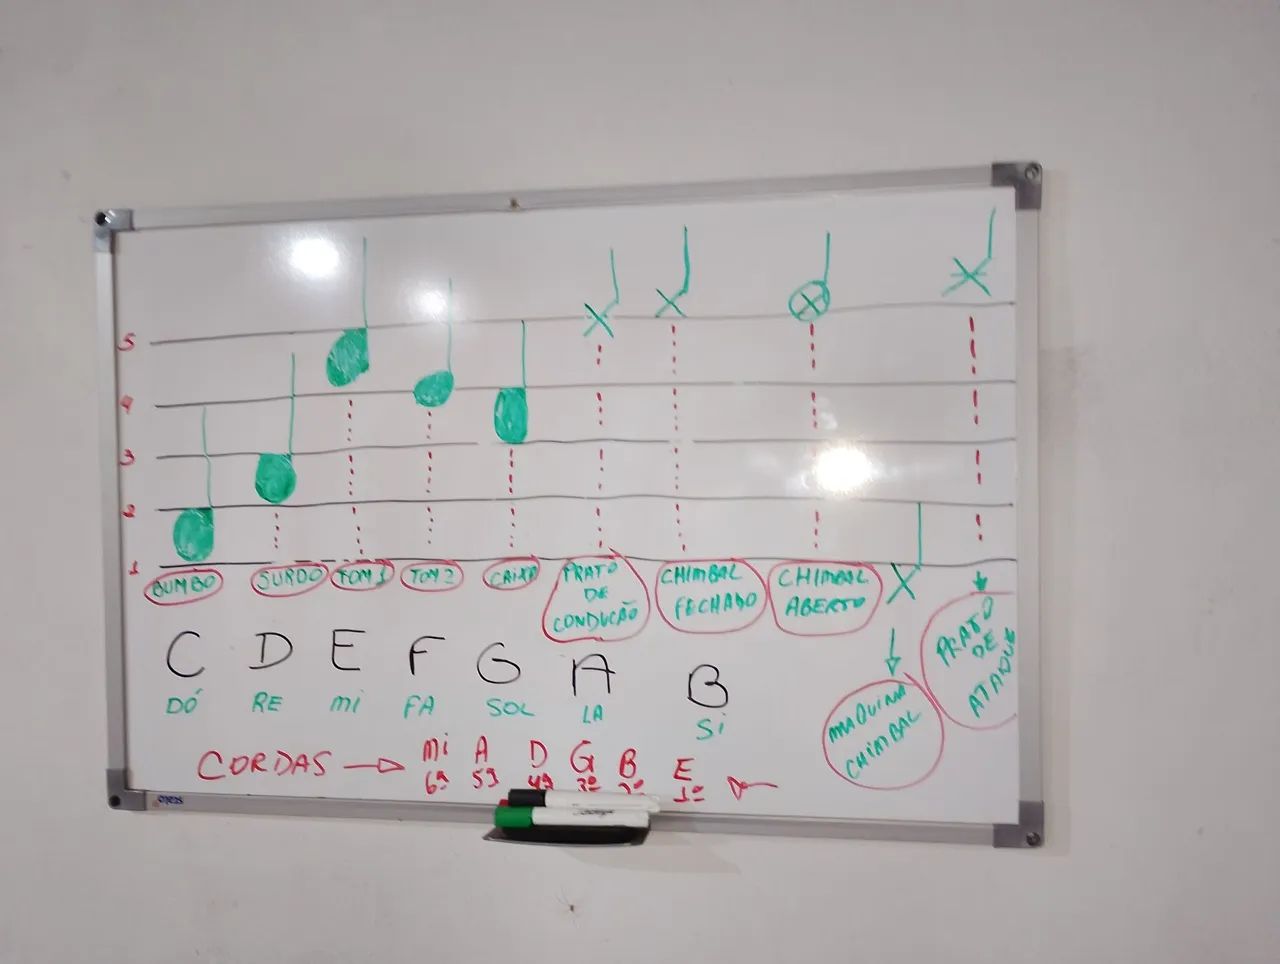 5
4
3
2
1
BUMBO
SURDO
TOM 1
TOM 2
CAIXA
PRATO
DE
CONDUÇÃO
CHIMBAL
FECHADO
CHIMBAL
ABERTO
MAQUINA
CHIMBAL
PRATO
DE
ATAQUE
C D E F G A B
DÓ RE Mi FA SOL LA Si
CORDAS Mi A D G B E
6ª 5ª 4ª 3ª 2ª 1ª